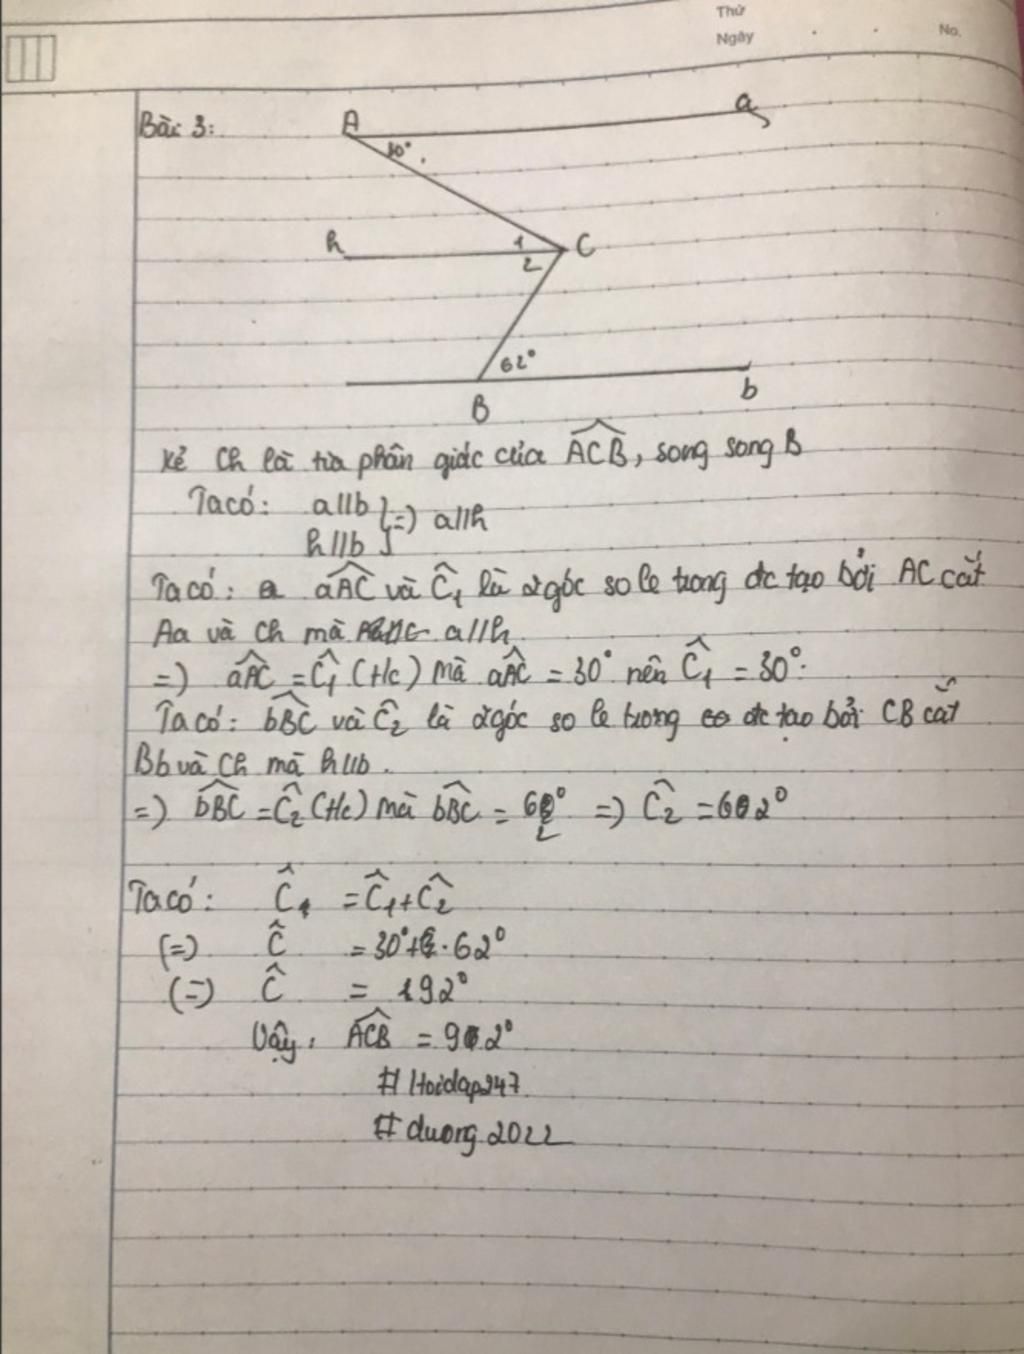 Thứ
Ngày
No.
Bài 3:
A
a
30°
h
1
2
C
62°
B
b
Kẻ Ch là tia phân giác của ACB, song song B
Ta có: a//b
h//b } => a//h
Ta có: aAC và C1 là 2 góc so le trong đc tạo bởi AC cắt
Aa và Ch mà a//h
=> aAC = C1 (t/c) mà aAC = 30° nên C1 = 30°.
Ta có: bBC và C2 là 2 góc so le trong đc tạo bởi CB cắt
Bb và Ch mà h//b.
=> bBC = C2 (t/c) mà bBC = 62° => C2 = 62°
Ta có: C1 = C1 + C2
(=) C = 30° + 62°
(=) C = 192°
Vậy, ACB = 92°
# Hoidap247
# duong.2022